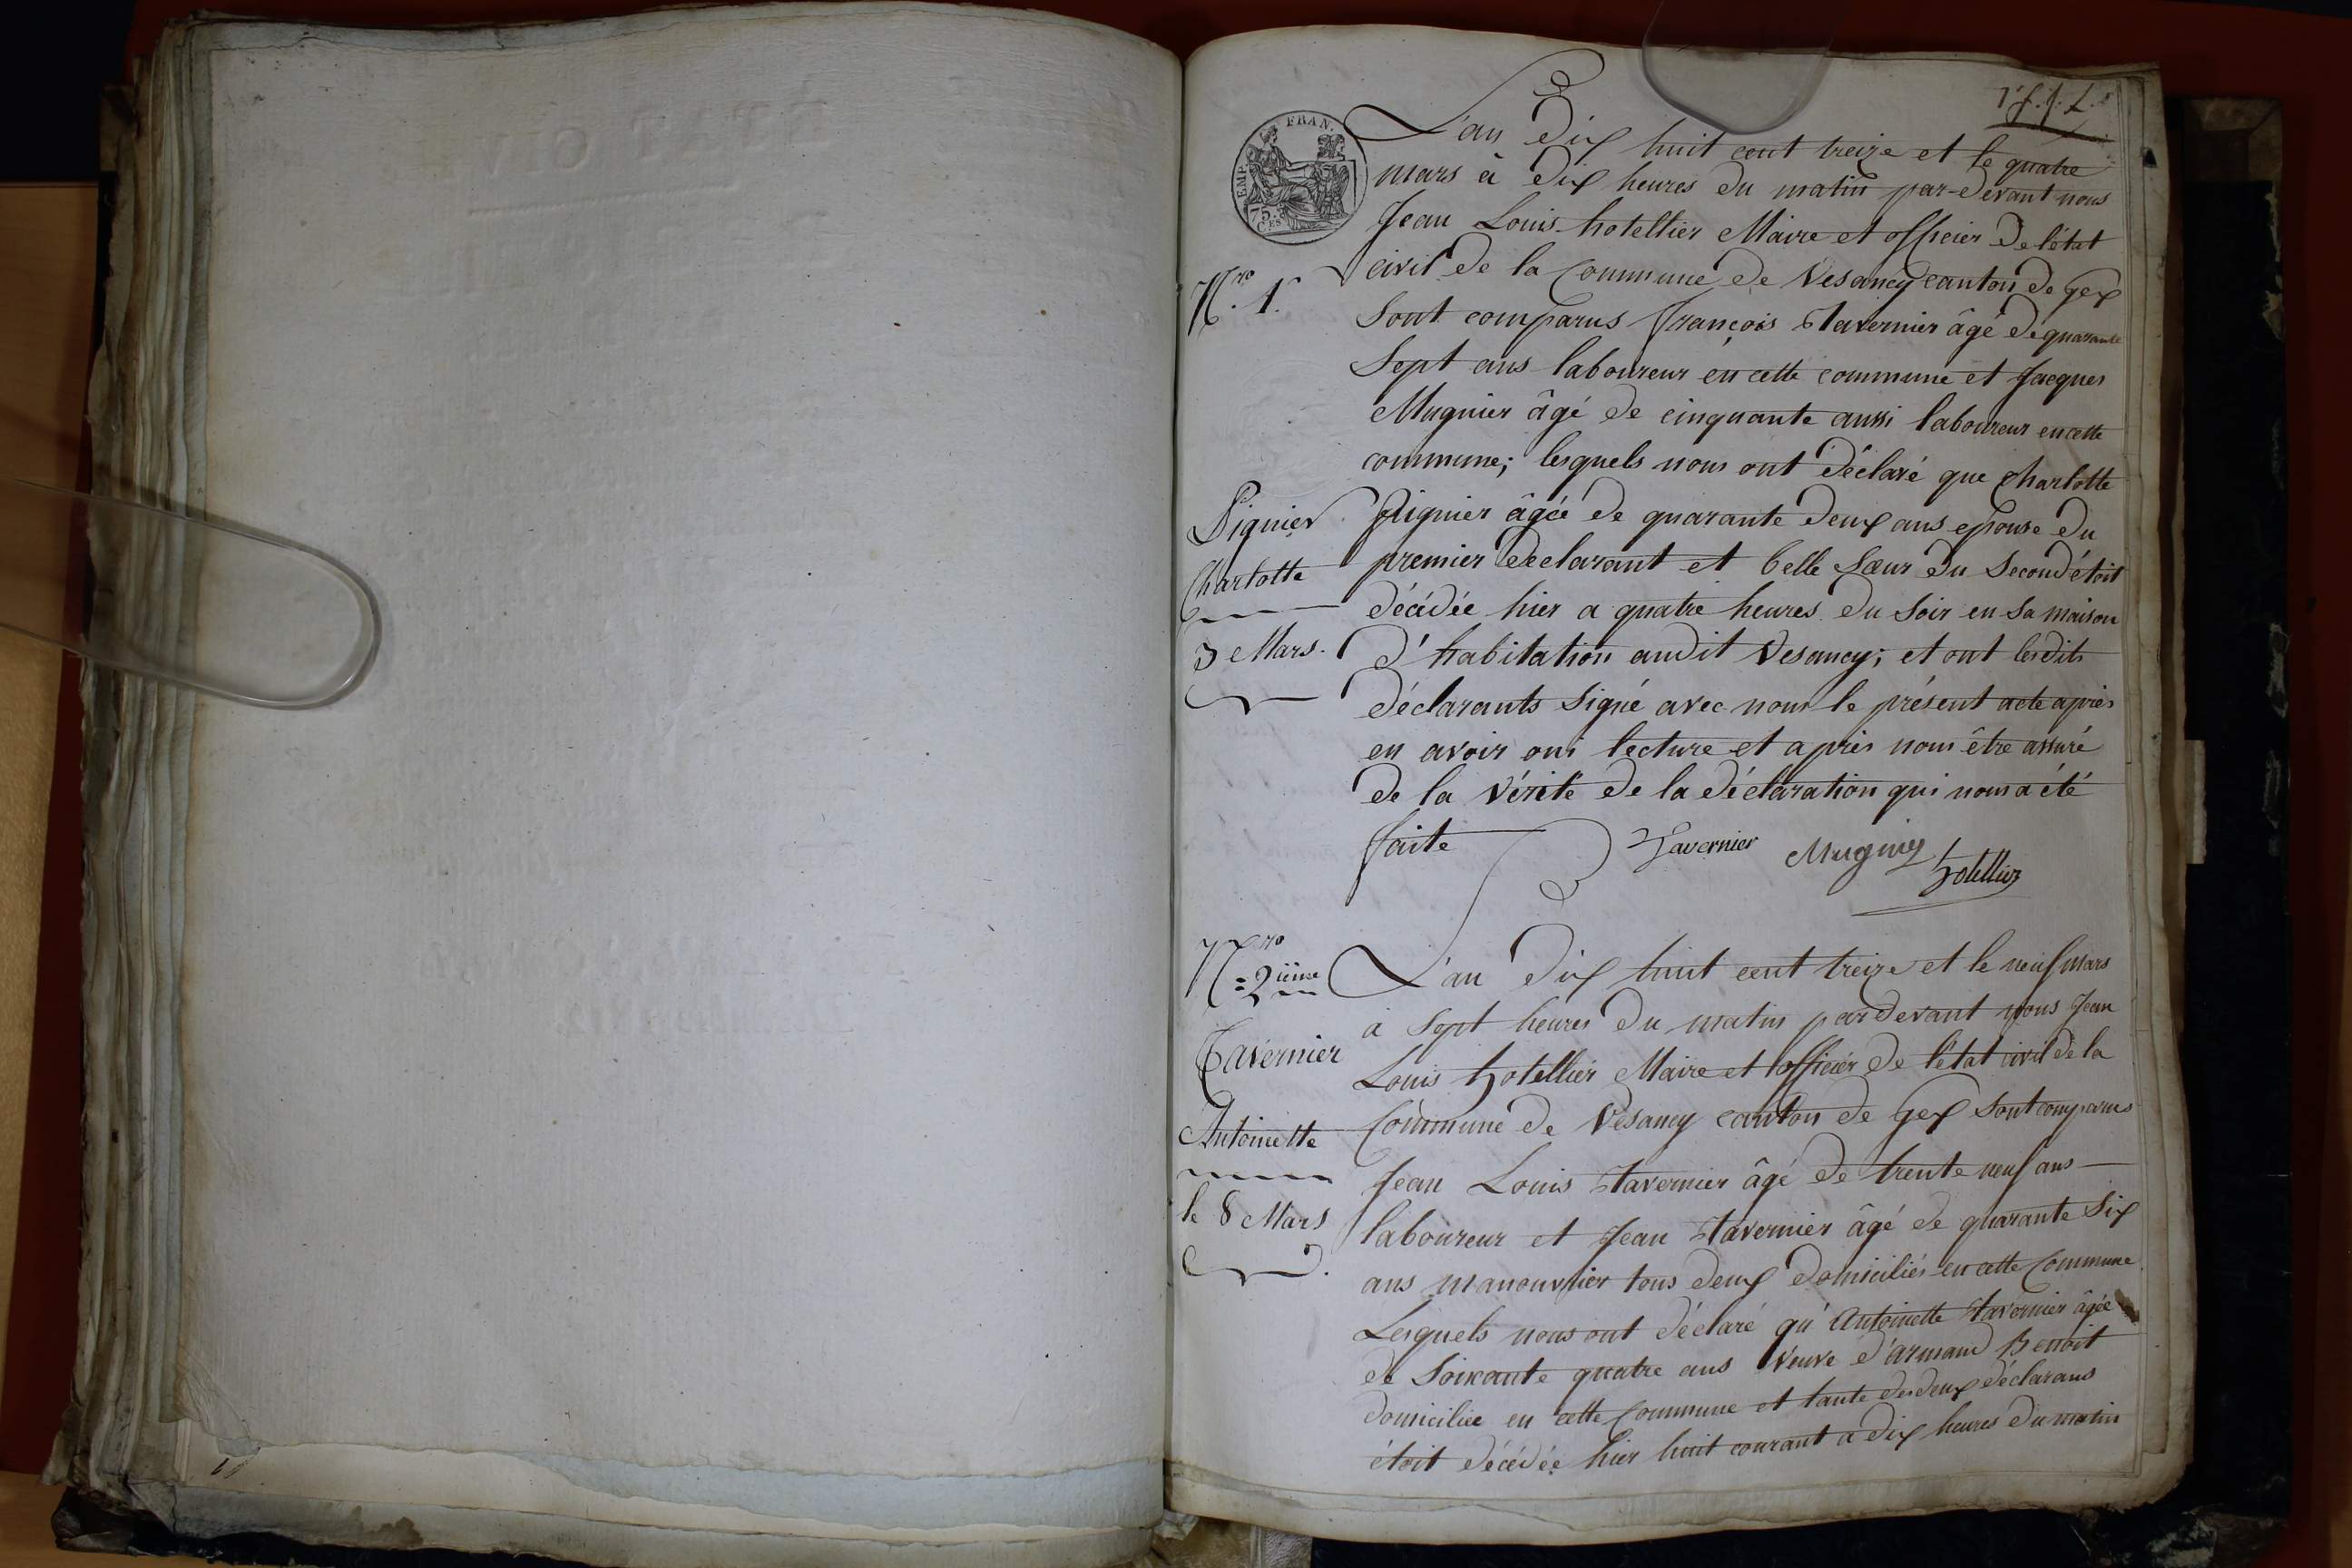 EMP. FRAN.
75. CES
L'an dix huit cent treize et le quatre
mars à dix heures du matin par-devant nous
Jean Louis hotellier Maire et officier de l'état
Nro. 1r.
civil de la Commune de Vesancy canton de Gex
Sont comparus françois Tavernier âgé de quarante
Sept ans laboureur en cette commune et Jacques
Mugnier âgé de cinquante aussi laboureur en cette
commune; lesquels nous ont déclaré que Charlotte
Pignier
Charlotte
3 Mars.
Pignier âgée de quarante deux ans epouse du
premier declarant et belle Sœur du Second étoit
décédée hier a quatre heures du Soir en Sa maison
d'habitation audit Vesancy; et ont lesdits
déclarants Signé avec nous le présent acte après
en avoir oui lecture et après nous être assuré
de la vérité de la déclaration qui nous a été
faite
Tavernier Mugnier
hotellier
Nro = 2ième
Tavernier
Antoinette
le 8 Mars
L'an dix huit cent treize et le neuf mars
à Sept heures du matin pardevant nous Jean
Louis hotellier Maire et officier de l'état civil de la
Commune de Vesancy canton de Gex Sont comparus
Jean Louis Tavernier âgé de trente neuf ans
laboureur et Jean Tavernier âgé de quarante Six
ans manouvrier tous deux domiciliés en cette Commune
Lesquels nous ont déclaré qu'Antoinette Tavernier âgée
de Soixante quatre ans Veuve d'armand Benoit
domiciliée en cette Commune et tante des deux déclarans
étoit décédée hier huit courant a dix heures du matin